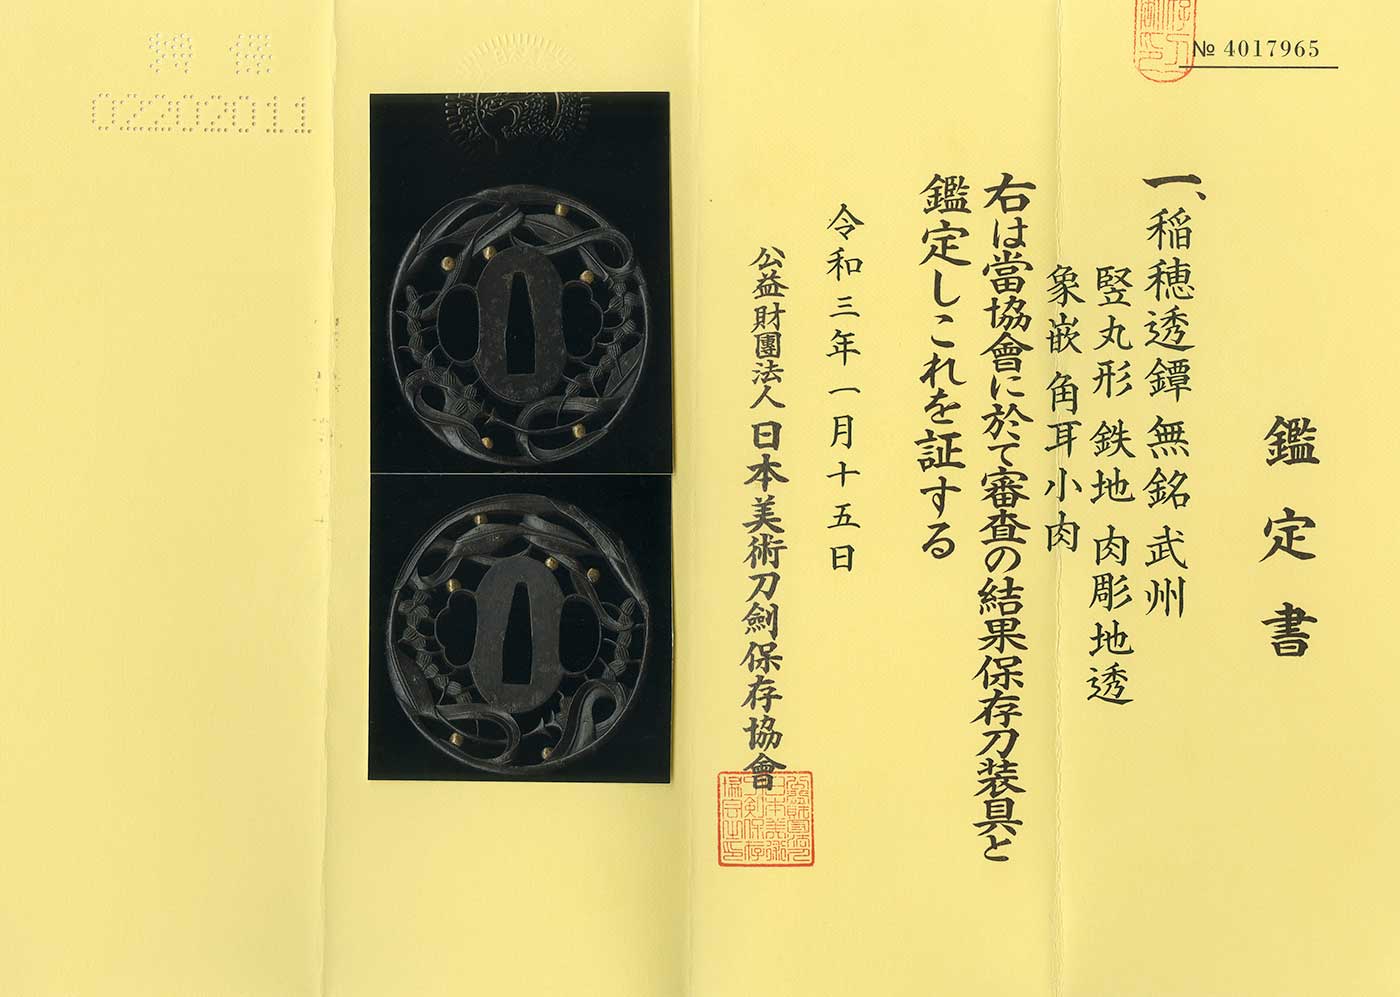 № 4017965
鑑定書
一、稲穂透鐔 無銘 武州
竪丸形 鉄地 肉彫地透
象嵌 角耳小肉
右は當協會に於て審査の結果保存刀装具と
鑑定しこれを証する
令和三年一月十五日
公益財團法人 日本美術刀劍保存協會
02202011